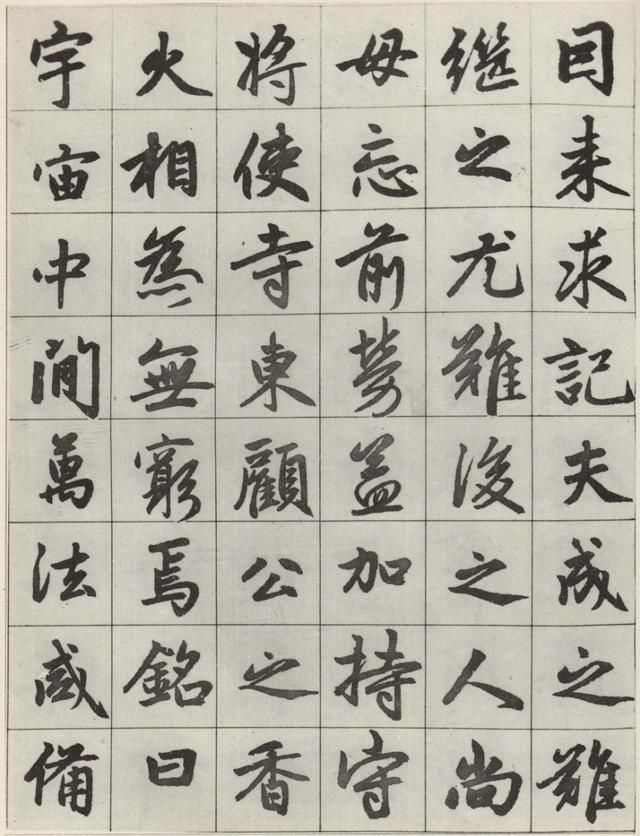 囙来求記夫成之難
继之尤難後之人尚
毋忘前勞益加持守
将使寺東顧公之香
火相為無窮焉銘曰
宇宙中間萬法咸備